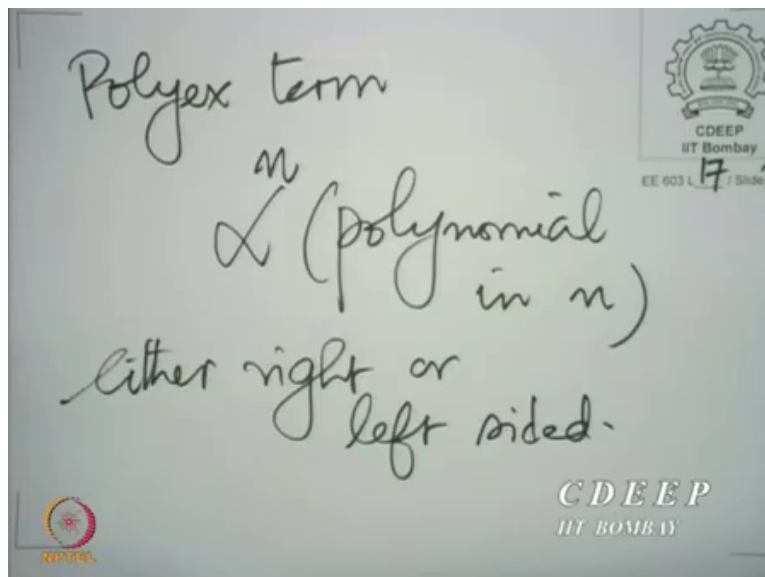 Polyex term
αⁿ (polynomial
in n)
either right or
left sided.
CDEEP
IIT Bombay
EE 603 L 17 / Slide
CDEEP
IIT BOMBAY
NPTEL